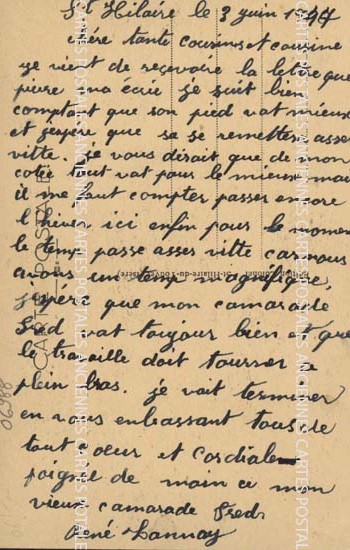 St Hilaire le 3 juin 1947
chère tante cousins et cousine
je vient de reçevoire la lettre que
pierre ma écrie je suit bien
comptant que son pied vat mieux
et jespère que sa se remettera asser
vitte. je vous dirait que de mon
cotée tout vat pour le mieux mai
il me faut compter passer encore
l'hiver ici enfin pour le moment
le temp passe asses vitte car nous
avons un temp magnifique,
jespère que mon camarade
Fred vat toujour bien et que
le travaille doit tourner a
plein bras. je vait terminer
en vous enbassant tous de
tout coeur et cordiale
poigne de main a mon
vieux camarade Fred
René Lannay
CARTE POSTALE
St-Hilaire-du-Touvet (Isère)
06988
CARTES POSTALES ANCIENNES CARTES POSTALES ANCIENNES CARTES POSTALES